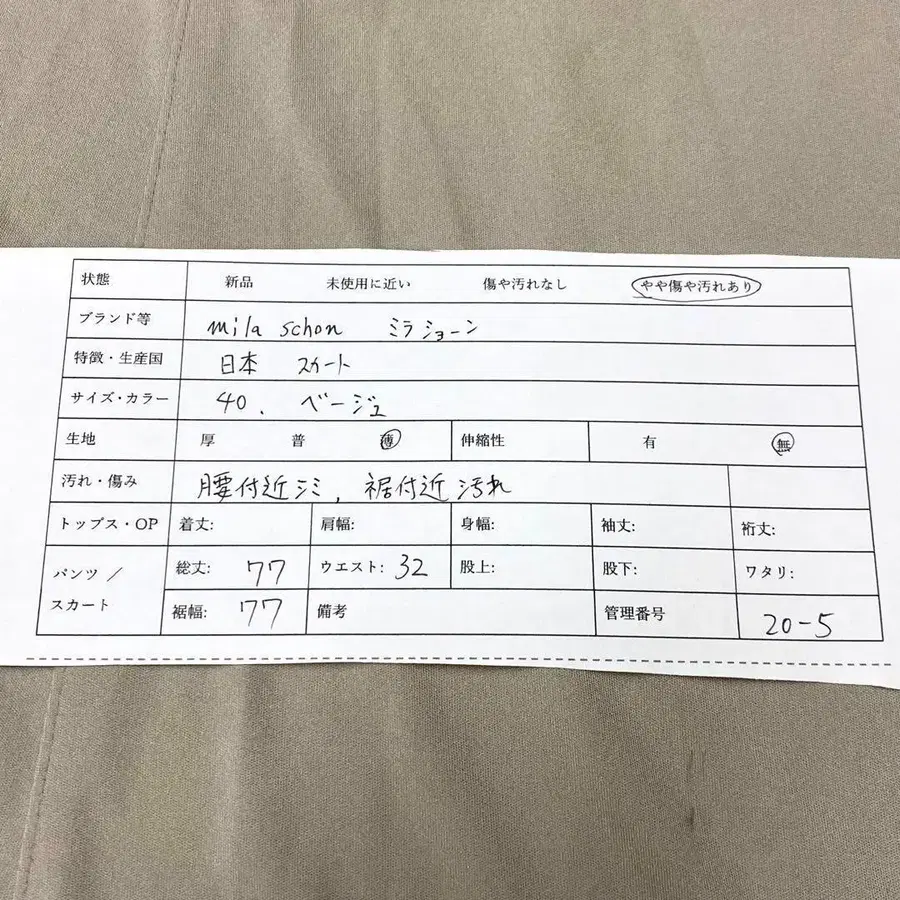 状態 新品 未使用に近い 傷や汚れなし やや傷や汚れあり
ブランド等 mila schon ミラショーン
特徴・生産国 日本 スカート
サイズ・カラー 40. ベージュ
生地 厚 普 薄 伸縮性 有 無
汚れ・傷み 腰付近シミ, 裾付近汚れ
トップス・OP 着丈: 肩幅: 身幅: 袖丈: 裄丈:
パンツ／スカート 総丈: 77 ウエスト: 32 股上: 股下: ワタリ:
裾幅: 77 備考 管理番号 20-5